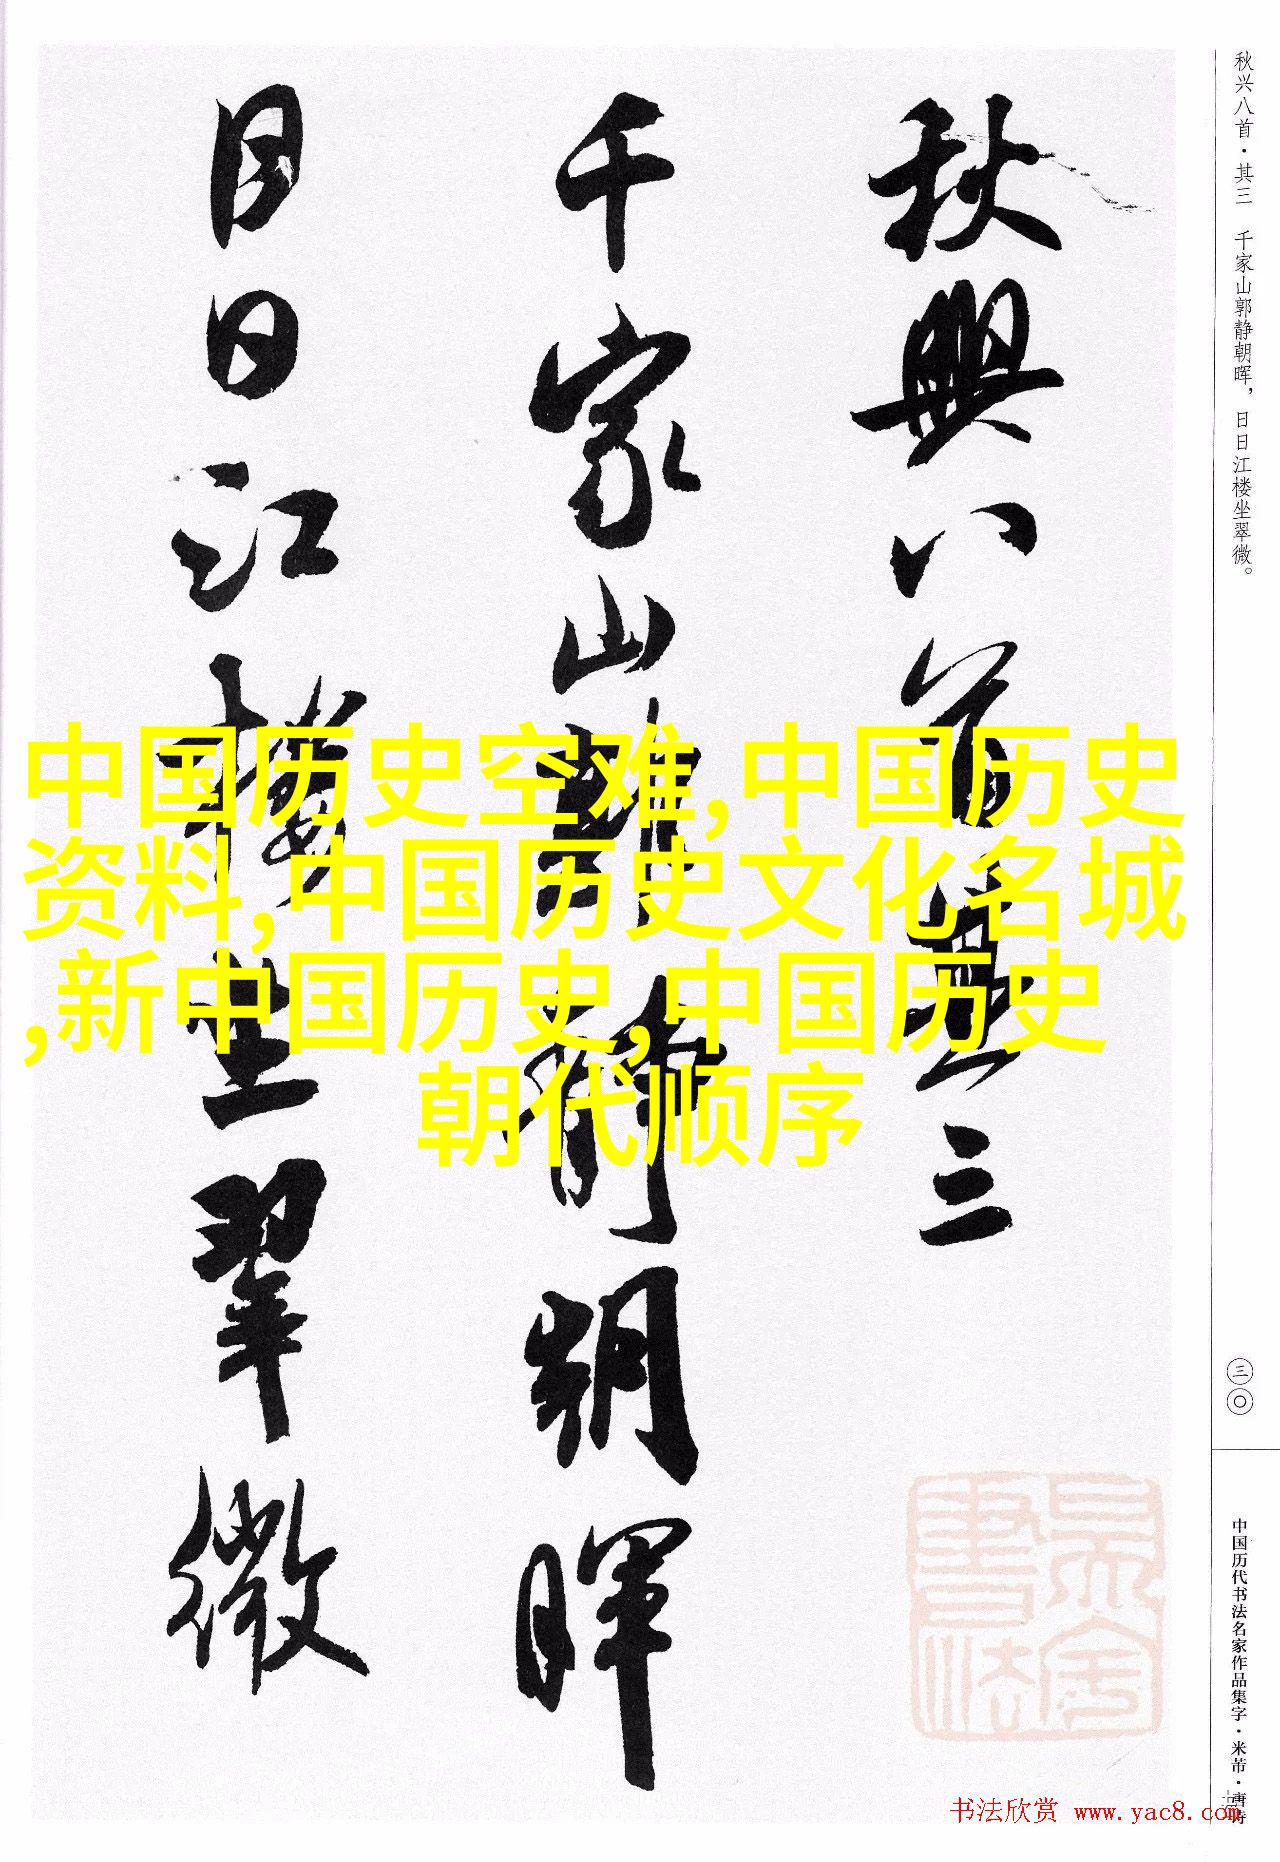 秋兴八首·其三 千家山郭静朝晖，日日江楼坐翠微。
三〇
中国历代书法名家作品集字·米芾·唐诗
秋興八首其三
千家山郭静朝暉
日日江樓坐翠微
中国历史空难,中国历史
资料,中国历史文化名城
,新中国历史,中国历史
朝代顺序
书法欣赏 www.yac8.com